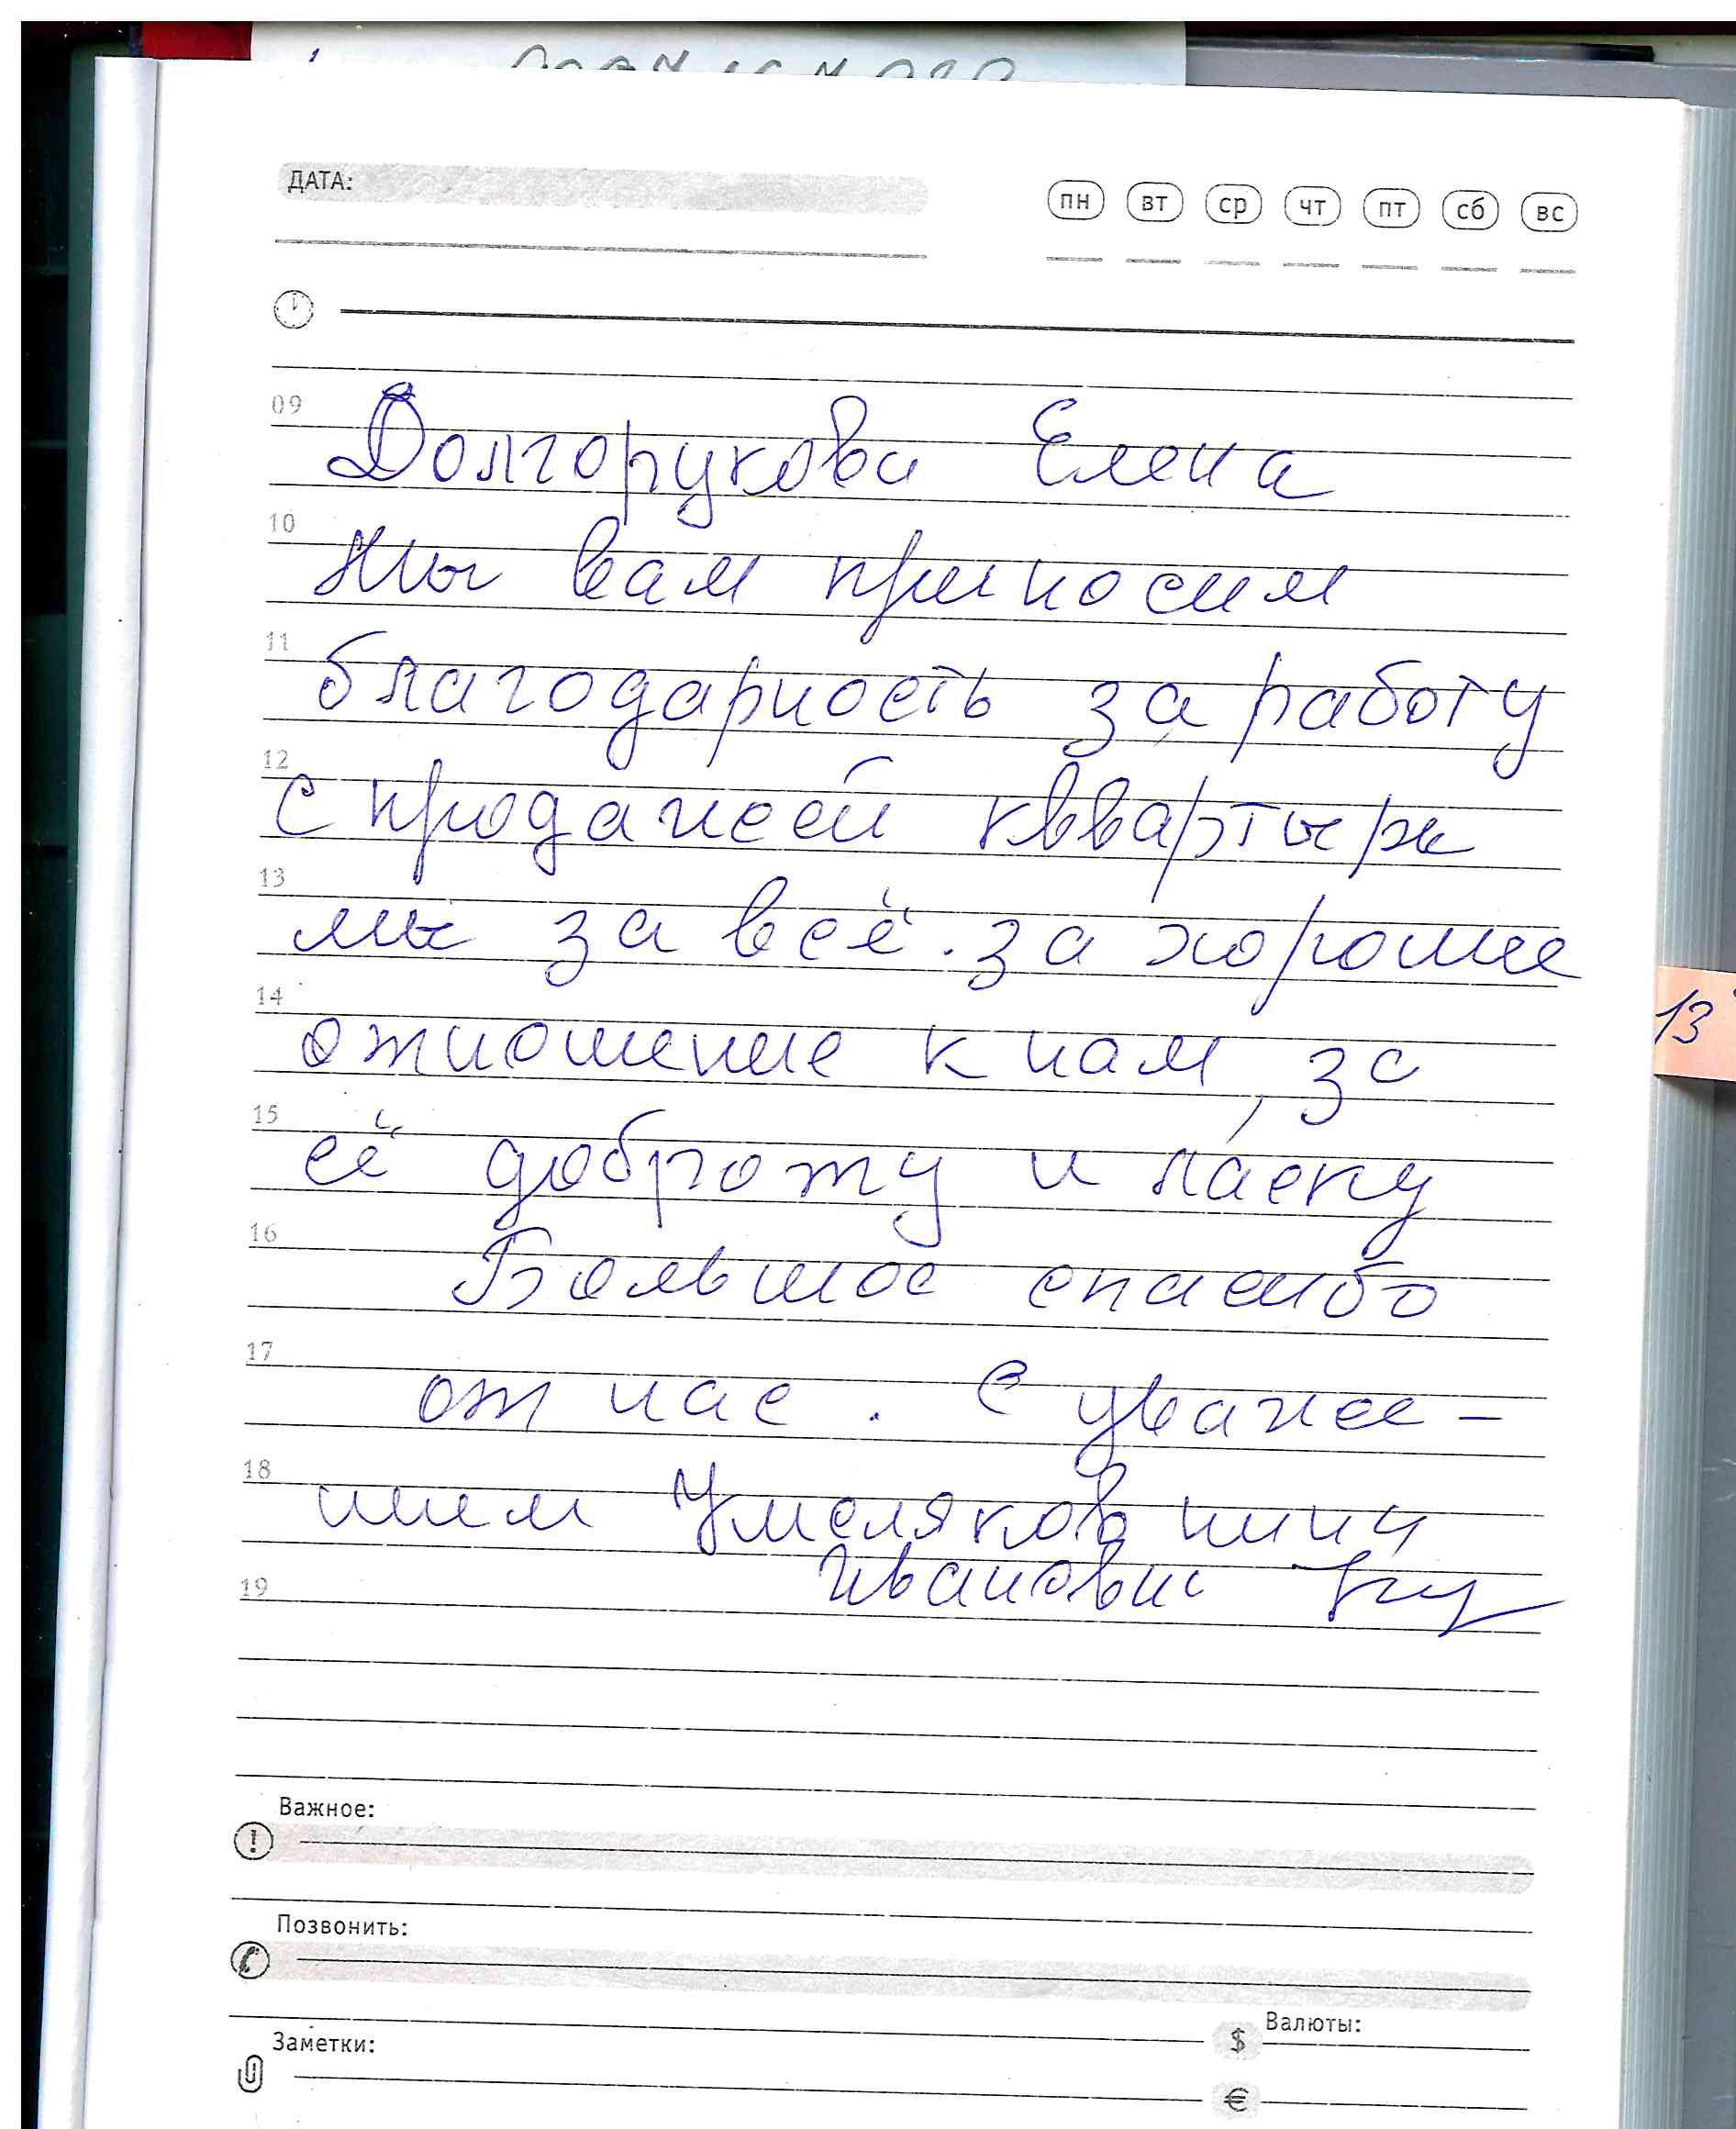 ДАТА:
пн вт ср чт пт сб вс
09
Долгорукова Елена
10
Мы вам приносим
11
благодарность за работу
12
с продажей квварты
13
мы за всё. за хорошее
14
отношение к нам, за
15
её доброту и ласку
16
Большое спасибо
17
от нас. С уваже-
18
нием Умеляков
Ивановна
19
13
Важное:
Позвонить:
Заметки:
Валюты:
$
€